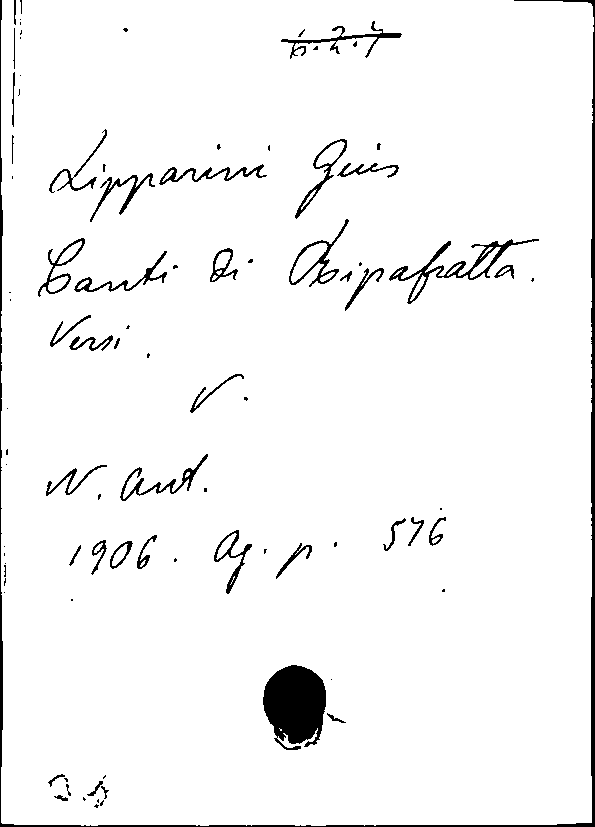 6.2.7
Lipparini Gius
Canti di Ripafratta.
Versi.
V.
N. Ant.
1906. Ag. p. 576